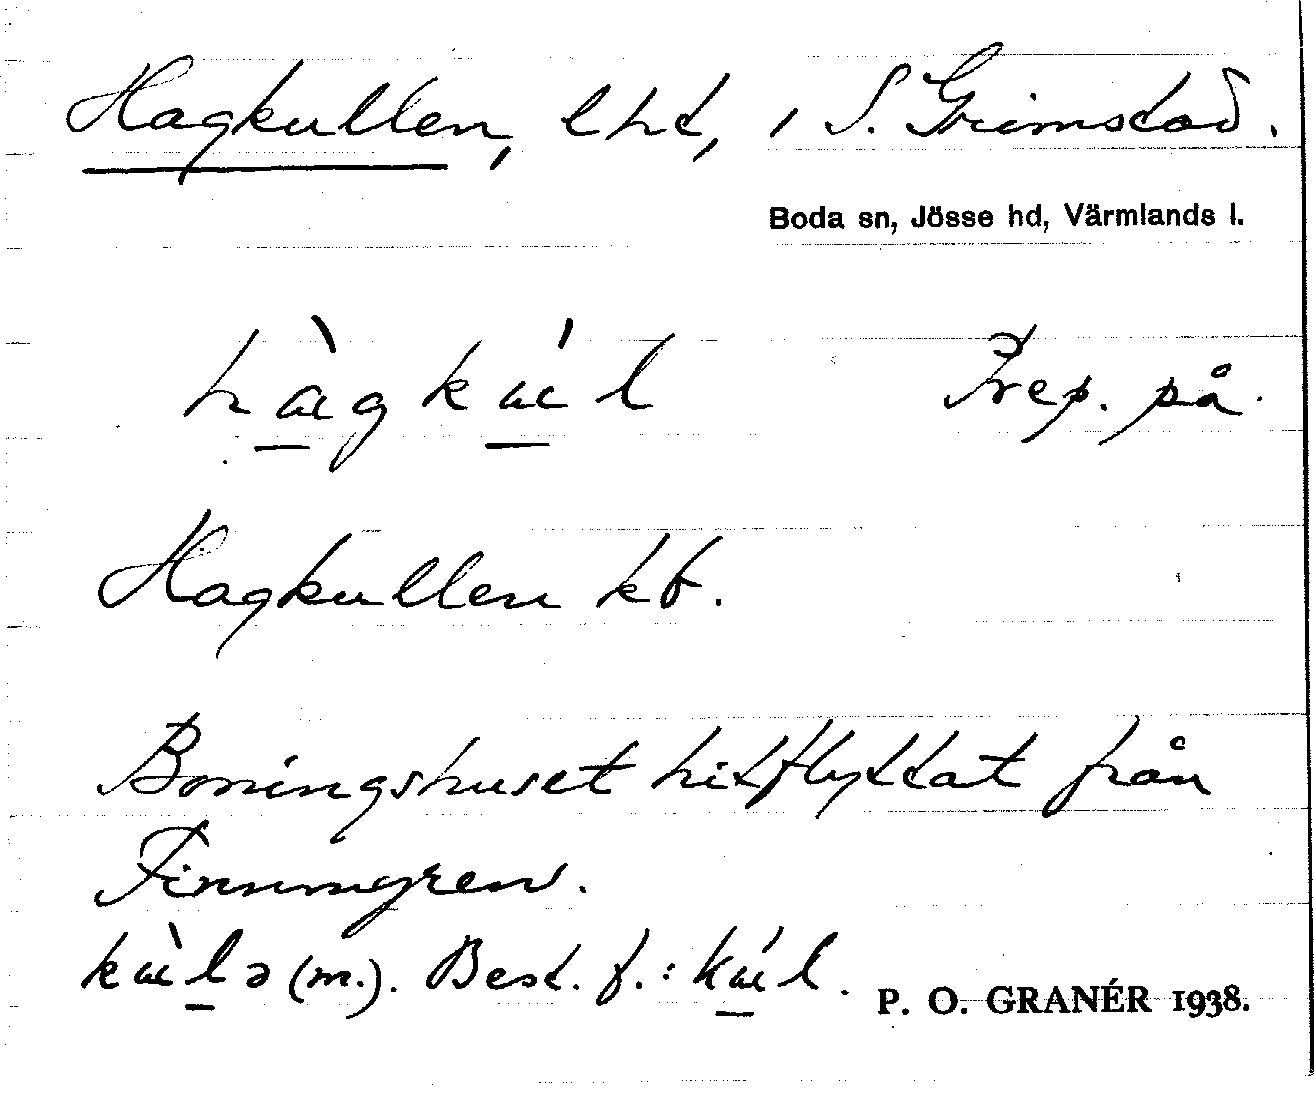 Hagkullen, lht, i S. Grimstad.
Boda sn, Jösse hd, Värmlands l.
hàgkúl Prep. på.
Hagkullen kb.
Boningshuset hitflyttat från
Finnmgren.
kùlə (m.). Best. f.: kúl.
P. O. GRANÉR 1938.